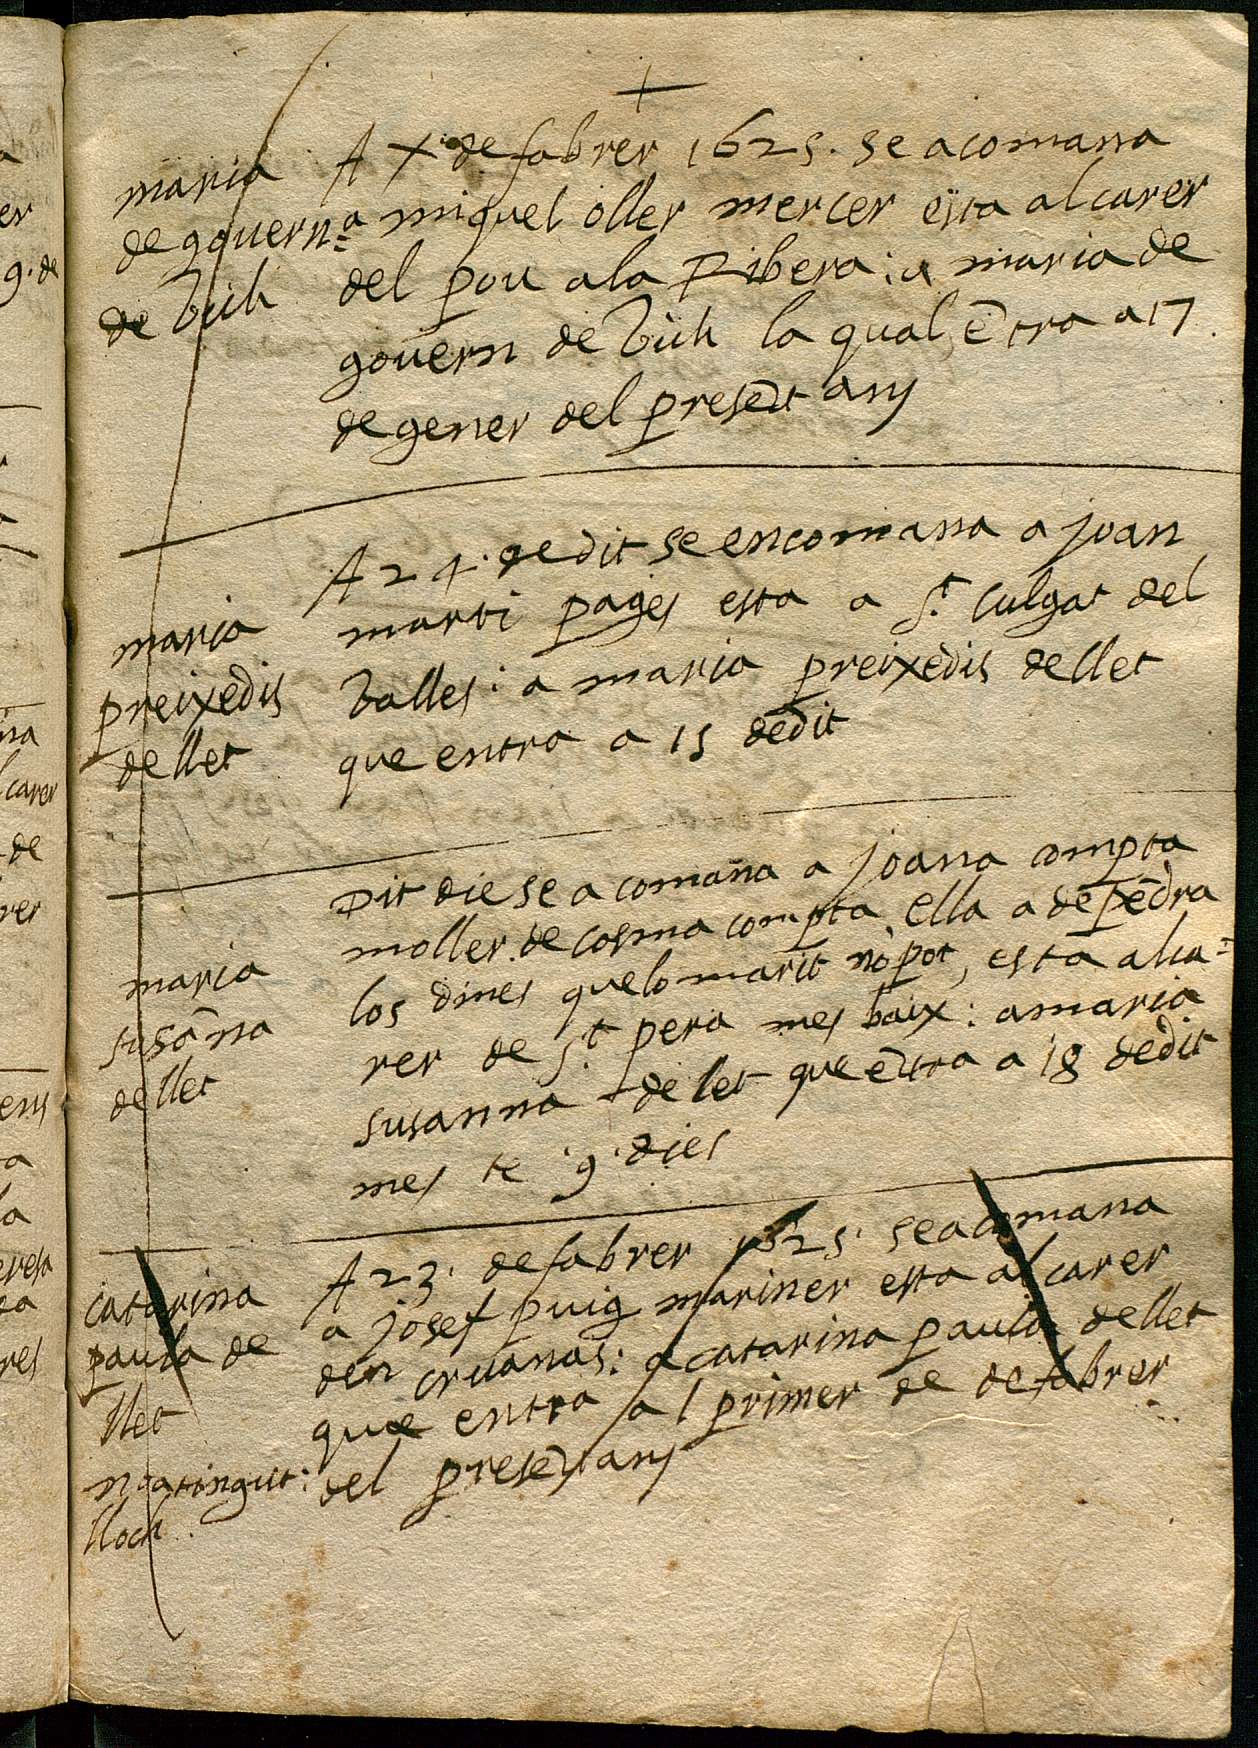 +
maria
de govern
de Vich
A X de fabrer 1625. se acomana
a miquel oller mercer esta al carer
del pou a la Ribera: a maria de
govern de Vich la qual ētra a 17
de gener del presēt any
maria
preixedis
de llet
A 24. de dit se encomana a joan
marti pages esta a St. Culgat del
Valles: a maria preixedis de llet
que entra a 15 de dit
maria
susāna
de llet
Dit die se a comana a joana compta
moller de cosma compta ella a de pēdra
los dines que lo marit no pot, esta al ca=
rer de St. pera mes baix: a maria
susanna de let que ētra a 18 de dit
mes te .9. dies
catarina
paula de
llet
n. a tingut
lloch
A 23. de fabrer 1625. se acomana
a josef puig mariner esta al carer
den cruanas: a catarina paula de llet
que entra al primer de de fabrer
del presēt any